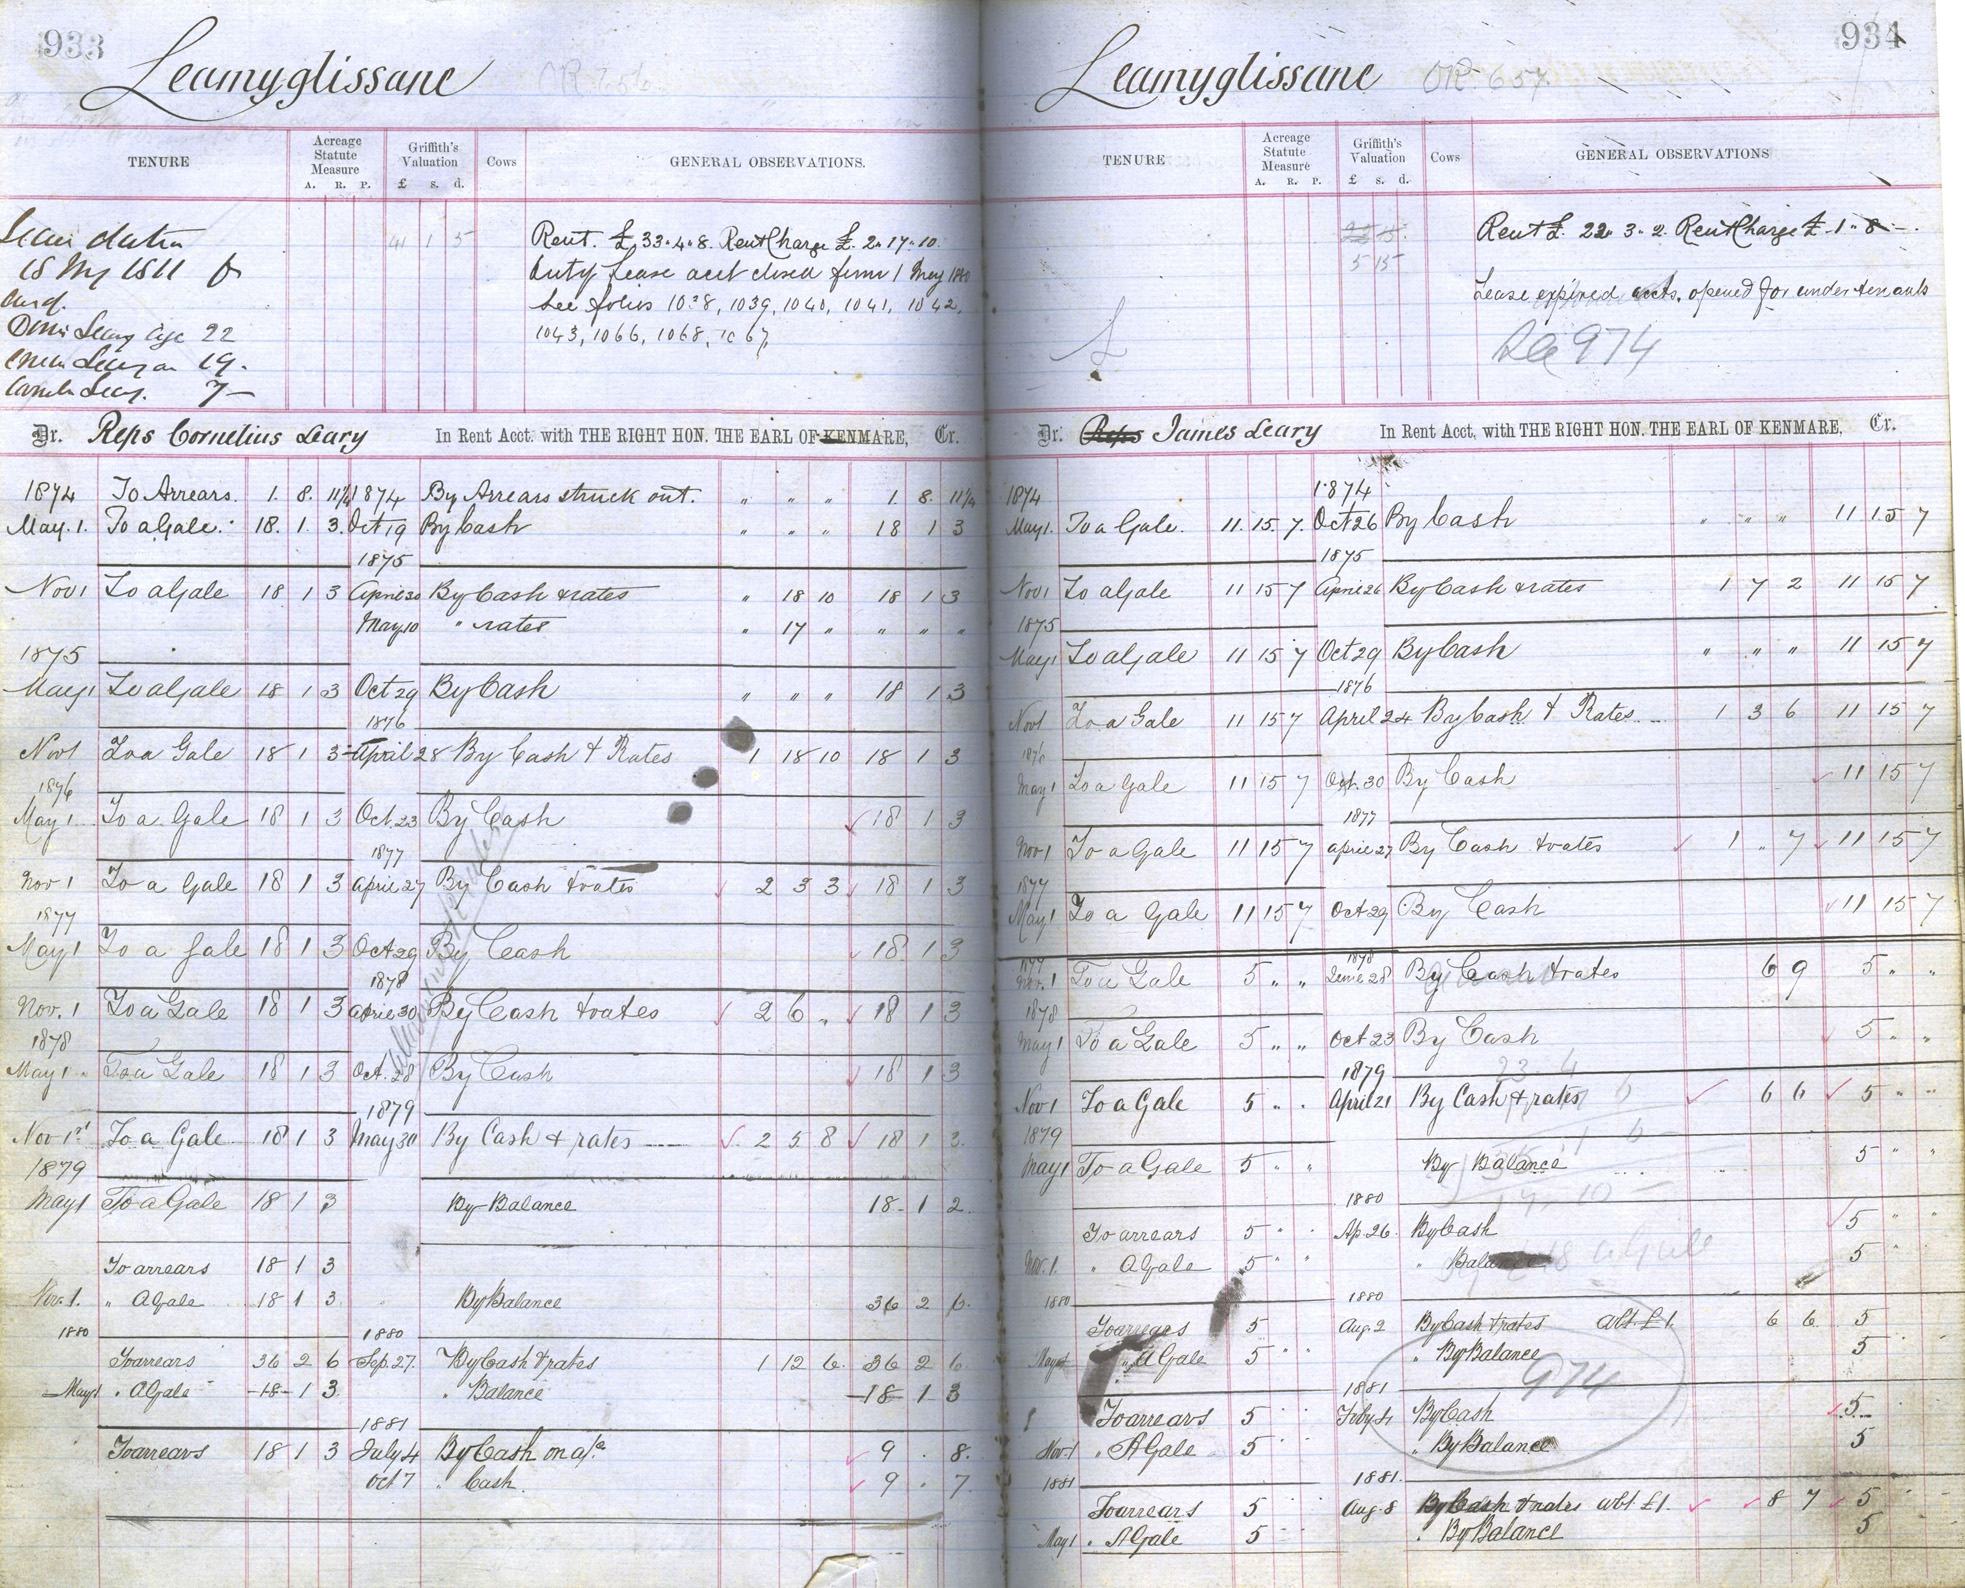 933
Leamyglissane
TENURE
Acreage Statute Measure
A. R. P.
Griffith's Valuation
£ s. d.
Cows
GENERAL OBSERVATIONS.
41 1 5
Rent. £33.4.8. RentCharge £.2.17.10.
Duty Lease acct closed from 1 May 1880
See folios 1038, 1039, 1040, 1041, 1042,
1043, 1066, 1068, 1067,
1811
Age 22
19.
7
Dr. Reps Cornelius Leary In Rent Acct. with THE RIGHT HON. THE EARL OF KENMARE, Cr.
1874 To Arrears. 1. 8. 11¼ 1874 By Arrears struck out. " " " 1. 8. 11¼
May. 1. To a Gale. 18. 1. 3. Oct 19 By Cash " " " 18 1 3
1875
Nov 1 To a Gale 18 1 3 April 30 By Cash & rates " 18 10 18 1 3
May 10 " rates " 17 " " " "
1875
May 1 To a Gale 18 1 3 Oct 29 By Cash " " " 18 1 3
1876
Nov 1 To a Gale 18 1 3 April 28 By Cash & Rates 1 18 10 18 1 3
1876
May 1 To a Gale 18 1 3 Oct. 23 By Cash 18 1 3
1877
Nov 1 To a Gale 18 1 3 April 27 By Cash & rates 2 3 3 18 1 3
1877
May 1 To a Gale 18 1 3 Oct 29 By Cash 18 1 3
1878
Nov. 1 To a Gale 18 1 3 April 30 By Cash & rates 2 6 " 18 1 3
1878
May 1 To a Gale 18 1 3 Oct. 28 By Cash 18 1 3
1879
Nov 1st To a Gale 18 1 3 May 30 By Cash & rates 2 5 8 18 1 3.
1879
May 1 To a Gale 18 1 3 By Balance 18 - 1 2
To arrears 18 1 3
Nov. 1. " A Gale 18 1 3. By Balance 36 2 6.
1880 1880
To arrears 36 2 6 Sep. 27. By Cash & rates 1 12 6. 36 2 6.
May 1 " A Gale 18 1 3. " Balance 18 - 1 3
1881
To arrears 18 1 3 July 4 By Cash on a/c 9 . 8.
Oct 7 " Cash. 9 . 7.
934
Leamyglissane OR. 657.
TENURE
Acreage Statute Measure
A. R. P.
Griffith's Valuation
£ s. d.
Cows
GENERAL OBSERVATIONS
5 15
Rent £. 22. 3. 2. RentCharge £ 1. 8 -.
Lease expired accts. opened for undertenants
See 974
Dr. Reps James Leary In Rent Acct. with THE RIGHT HON. THE EARL OF KENMARE, Cr.
1874 1874
May 1. To a Gale. 11. 15. 7. Oct 26 By Cash " " " 11 15 7
1875
Nov 1 To a Gale 11 15 7 April 26 By Cash & rates 1 7 2 11 15 7
1875
May 1 To a Gale 11 15 7 Oct 29 By Cash " " " 11 15 7
1876
Nov 1 To a Gale 11 15 7 April 24 By Cash & Rates 1 3 6 11 15 7
1876
May 1 To a Gale 11 15 7 Oct. 30 By Cash 11 15 7
1877
Nov 1 To a Gale 11 15 7 April 27 By Cash & rates 1 " 7 11 15 7
1877
May 1 To a Gale 11 15 7 Oct 29 By Cash 11 15 7
1877 1878
Nov. 1 To a Gale 5 " " June 28 By Cash & rates 6 9 5 " "
1878
May 1 To a Gale 5 " " Oct 23 By Cash 5 " "
1879
Nov 1 To a Gale 5 " " April 21 By Cash & rates 6 6 5 " "
1879
May 1 To a Gale 5 " " By Balance 5 " "
1880
To arrears 5 " " Ap. 26. By Cash 5 " "
Nov. 1. " A Gale 5 " " " Balance 5 " "
1880 1880
To arrears 5 Aug. 2 By Cash & rates abt £1. 6 6. 5
May 1 " A Gale 5 " " " By Balance 5
974
1881
To arrears 5 " " July 4 By Cash 5
Nov. 1 " A Gale 5 " By Balance 5
1881 1881.
To arrears 5 " " Aug. 8 By Cash & rates abt. £1. 8 7 5
May 1 " A Gale 5 " " " By Balance 5